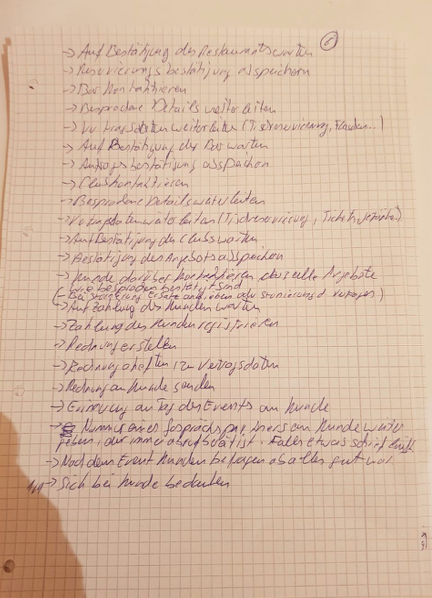 -> Auf Bestätigung des Restaurants warten
-> Reservierungsbestätigung abspeichern
-> Bar kontaktieren
-> Besprochene Details weiterleiten
-> weiterleiten (Tischreservierung, Flaschen...)
-> Auf Bestätigung der Bar warten
-> bestätigung abspeichern
-> Club kontaktieren
-> Besprochene Details weiterleiten
-> weiterleiten (Tischreservierung, Tickets, )
-> Auf Bestätigung des Clubs warten
-> Bestätigung des Angebots abspeichern
-> Kunde darüber kontaktieren, dass alle Angebote
wie besprochen bestätigt sind
(-> Bei stornierung Ersatz )
-> Auf Zahlung des Kunden warten
-> Zahlung des Kunden registrieren
-> Rechnung erstellen
-> Rechnung abheften zu Vertragsdaten
-> Rechnung an Kunde senden
-> Erinnerung am Tag des Events an Kunde
-> Nummer eines Gesprächspartners am Kunde weiter
geben, der immer abrufbereit ist. Falls etwas schief läuft
-> Nach dem Event Kunden befragen ob alles gut war
-> Sich bei Kunde bedanken